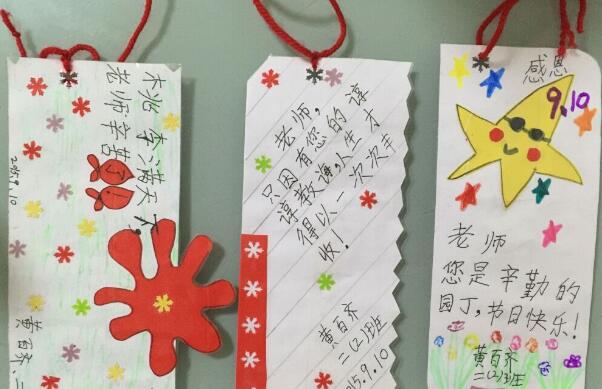 桃李满天下。
老师辛苦了!
2015.9.10
黄百齐、二
老师,
只因有您的谆
谆教诲,人生才
得以一次次丰
收!
黄百齐
二(2)班
15.9.10
感恩
9.10
老师
您是辛勤的
园丁,节日快乐!
黄百齐
二(2)班